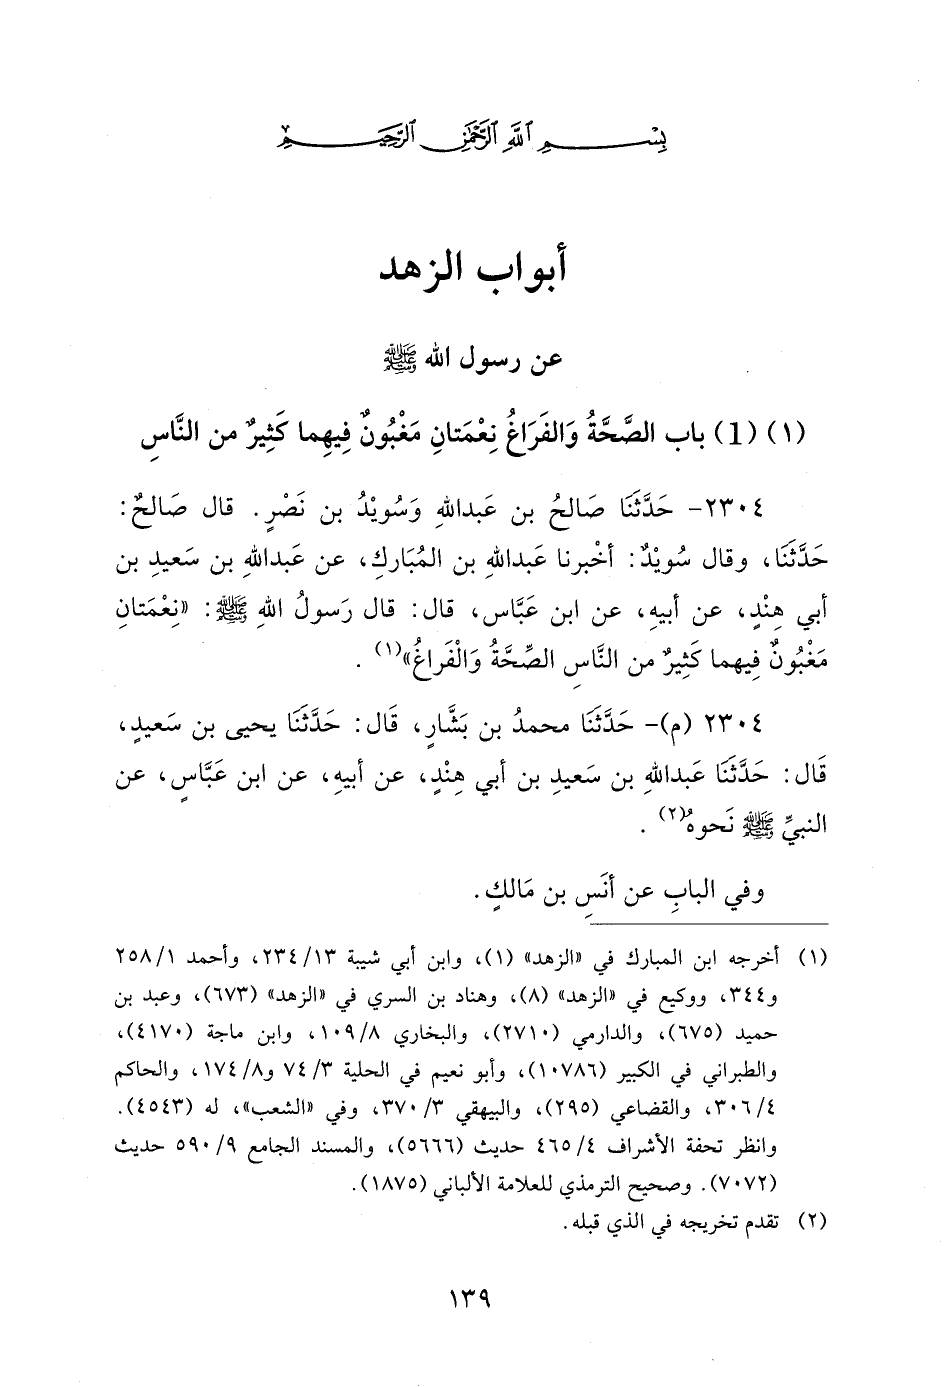 بِسْمِ اللَّهِ الرَّحْمَنِ الرَّحِيمِ
أبواب الزهد
عن رسول الله ﷺ
(١) (1) باب الصَّحَّةُ وَالفَرَاغُ نِعْمَتانِ مَغْبُونٌ فِيهِما كَثِيرٌ من النَّاسِ
٢٣٠٤- حَدَّثَنَا صَالحُ بن عَبداللهِ وَسُوَيْدُ بن نَصْرٍ. قال صَالحٌ:
حَدَّثَنَا، وقال سُويْدٌ: أخْبرنا عَبداللهِ بن المُبَاركِ، عن عَبداللهِ بن سَعيدِ بن
أبي هِنْدٍ، عن أبيهِ، عن ابن عَبَّاس، قال: قال رَسولُ اللهِ ﷺ: «نِعْمَتانِ
مَغْبُونٌ فِيهما كَثِيرٌ من النَّاسِ الصِّحَّةُ وَالْفَراغُ»(١).
٢٣٠٤ (م)- حَدَّثَنَا محمدُ بن بَشَّارٍ، قَال: حَدَّثَنَا يحيى بن سَعيدٍ،
قَال: حَدَّثَنَا عَبداللهِ بن سَعيدِ بن أبي هِنْدٍ، عن أبيهِ، عن ابن عَبَّاسٍ، عن
النبيِّ ﷺ نَحوهُ(٢).
وفي البابِ عن أنَسِ بن مَالكٍ.
(١) أخرجه ابن المبارك في «الزهد» (١)، وابن أبي شيبة ٢٣٤/١٣، وأحمد ٢٥٨/١
و٣٤٤، ووكيع في «الزهد» (٨)، وهناد بن السري في «الزهد» (٦٧٣)، وعبد بن
حميد (٦٧٥)، والدارمي (٢٧١٠)، والبخاري ١٠٩/٨، وابن ماجة (٤١٧٠)،
والطبراني في الكبير (١٠٧٨٦)، وأبو نعيم في الحلية ٧٤/٣ و١٧٤/٨، والحاكم
٣٠٦/٤، والقضاعي (٢٩٥)، والبيهقي ٣٧٠/٣، وفي «الشعب»، له (٤٥٤٣).
وانظر تحفة الأشراف ٤٦٥/٤ حديث (٥٦٦٦)، والمسند الجامع ٥٩٠/٩ حديث
(٧٠٧٢). وصحيح الترمذي للعلامة الألباني (١٨٧٥).
(٢) تقدم تخريجه في الذي قبله.
١٣٩